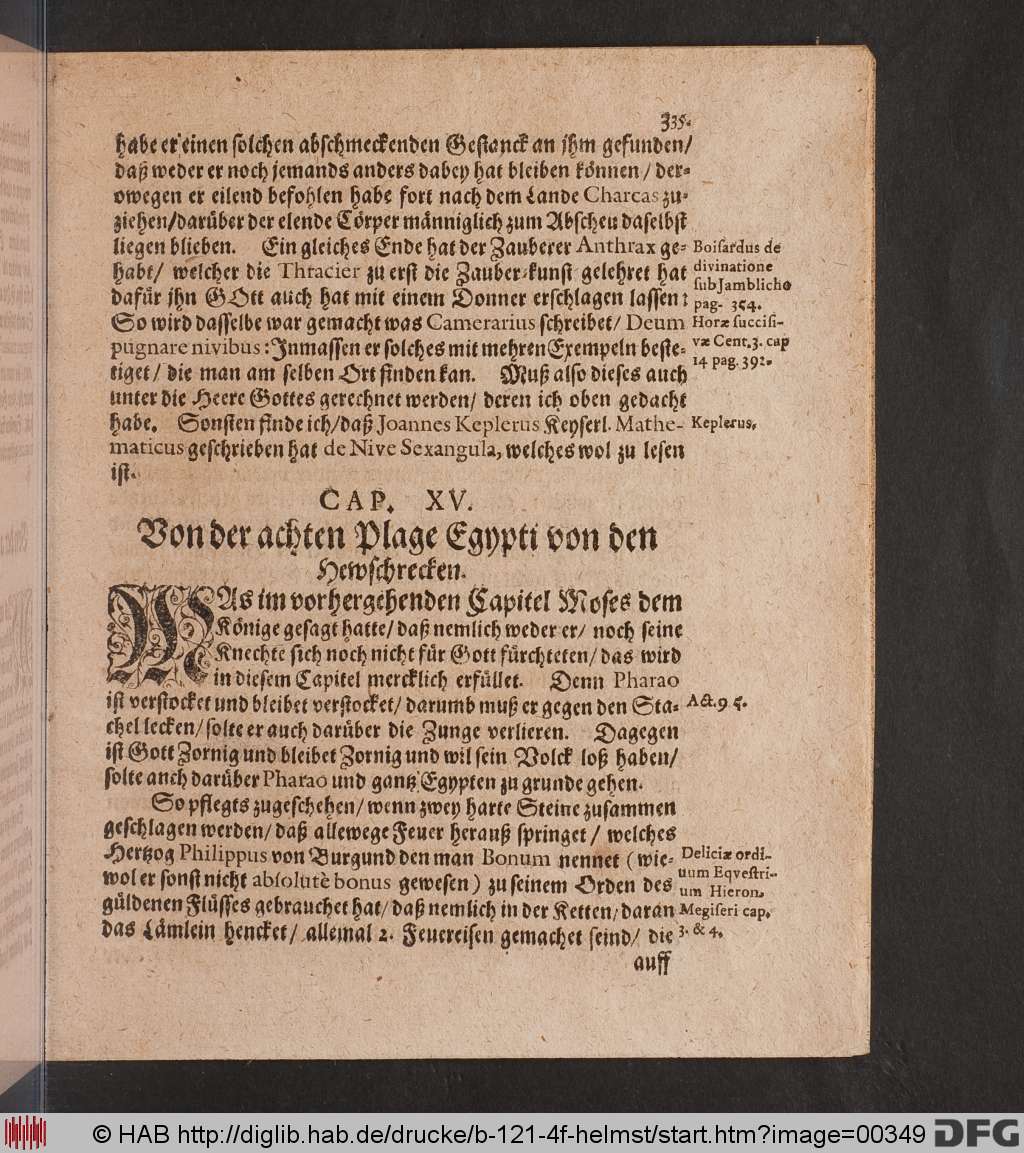 335.
habe er einen solchen abschmeckenden Gestanck an jhm gefunden/
daß weder er noch jemands anders dabey hat bleiben können / der-
owegen er eilend befohlen habe fort nach dem Lande Charcas zu-
ziehen/darüber der elende Cörper männiglich zum Abscheu daselbst
liegen blieben. Ein gleiches Ende hat der Zauberer Anthrax ge-
habt/ welcher die Thracier zu erst die Zauber-kunst gelehret hat
dafür jhn GOtt auch hat mit einem Donner erschlagen lassen:
So wird dasselbe war gemacht was Camerarius schreibet/ Deum
pugnare nivibus: Jnmassen er solches mit mehren Exempeln beste-
tiget/ die man am selben Ort finden kan. Muß also dieses auch
unter die Heere Gottes gerechnet werden/ deren ich oben gedacht
habe. Sonsten finde ich/daß Joannes Keplerus Keyserl. Mathe-
maticus geschrieben hat de Nive Sexangula, welches wol zu lesen
ist.
Boisardus de
divinatione
sub Jamblicho
pag. 354.
Horæ succisi-
væ Cent. 3. cap
14 pag. 392.
Keplerus.
CAP. XV.
Von der achten Plage Egypti von den
Hewschrecken.
WAs im vorhergehenden Capitel Moses dem
Könige gesagt hatte/ daß nemlich weder er/ noch seine
Knechte sich noch nicht für Gott fürchteten/ das wird
in diesem Capitel mercklich erfüllet. Denn Pharao
ist verstocket und bleibet verstocket/ darumb muß er gegen den Sta-
chel lecken/ solte er auch darüber die Zunge verlieren. Dagegen
ist Gott Zornig und bleibet Zornig und wil sein Volck loß haben/
solte auch darüber Pharao und gantz Egypten zu grunde gehen.
Act. 9 5.
So pflegts zugeschehen/ wenn zwey harte Steine zusammen
geschlagen werden/ daß allewege Feuer herauß springet / welches
Hertzog Philippus von Burgund den man Bonum nennet (wie-
wol er sonst nicht absolutè bonus gewesen) zu seinem Orden des
güldenen Flüsses gebrauchet hat/ daß nemlich in der Ketten/ daran
das Lämlein hencket/ allemal 2. Feuereisen gemachet seind/ die
Deliciæ ordi-
uum Eqvestri-
um Hieron.
Megiseri cap.
3. & 4.
auff
© HAB http://diglib.hab.de/drucke/b-121-4f-helmst/start.htm?image=00349
DFG